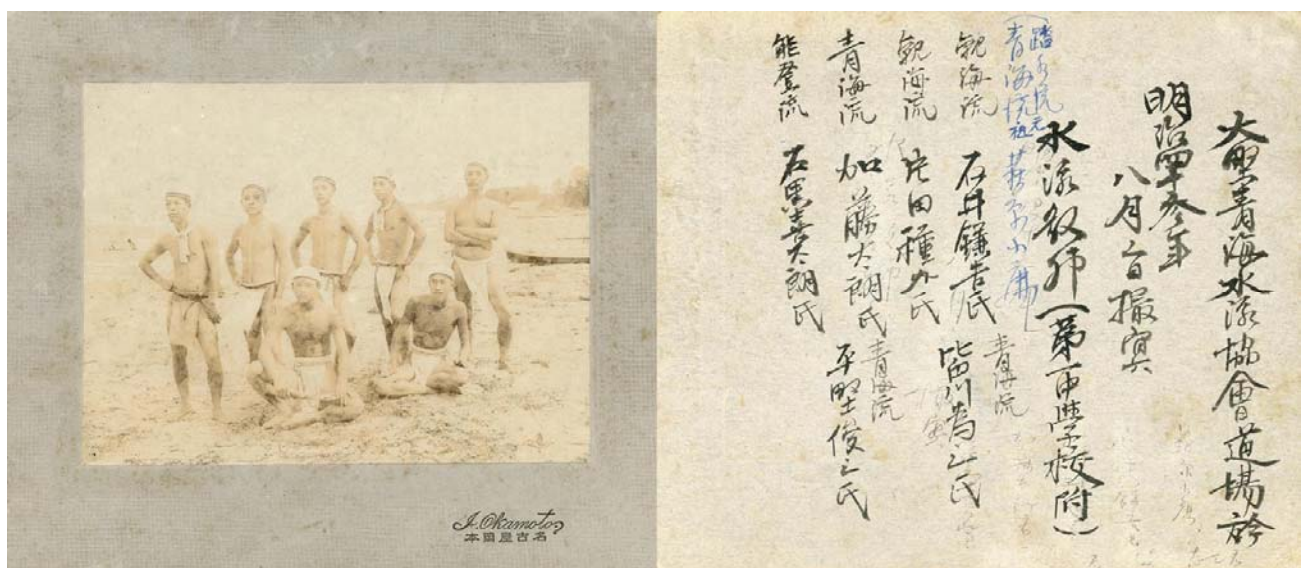 I. Okamoto
本岡屋古名
大野青海水泳協會道場於
明治四十参年
八月二日撮寫
水泳教師（第一中學校附）
踏水流元
青海流祖
観海流 石井鎌吉氏
青海流 皆川為之氏
観海流 片田種外氏
青海流 加藤太朗氏
青海流 平野俊之氏
能登流 石黒喜太朗氏